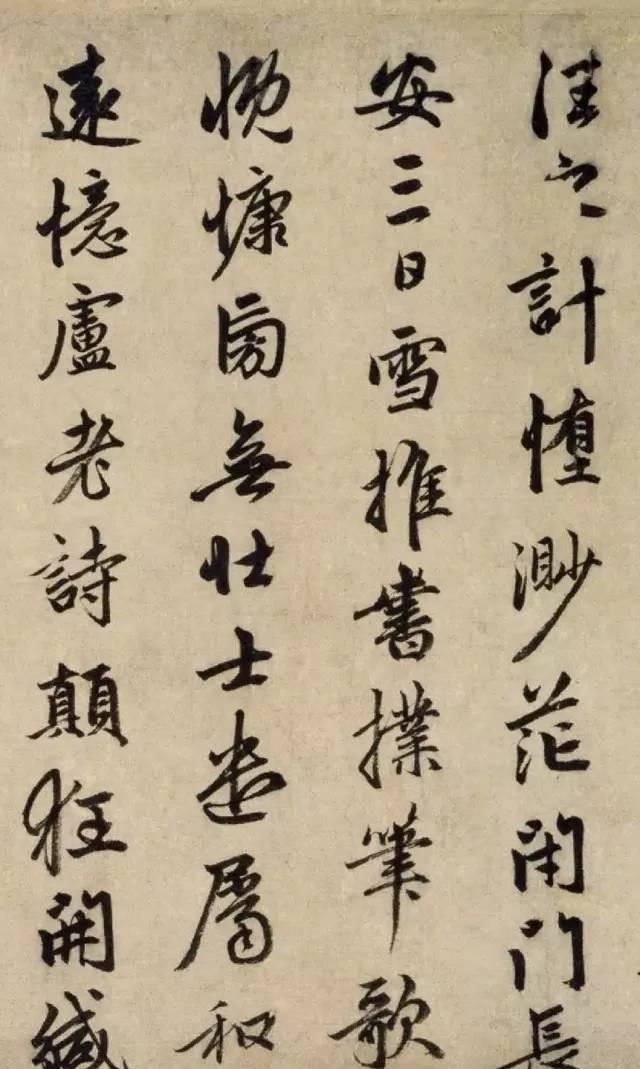 往之計墮渺茫閉門長
安三日雪推書撲筆歌
慨慷旁無壯士遣屬和
遠憶盧老詩顛狂開緘